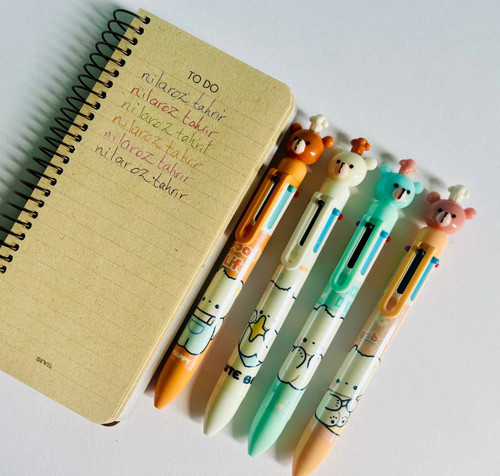 TO DO
nilaroz tahrir
nilaroz tahrir
nilaroz tahrir
nilaroz tahrir
nilaroz tahrir
nilaroz tahrir